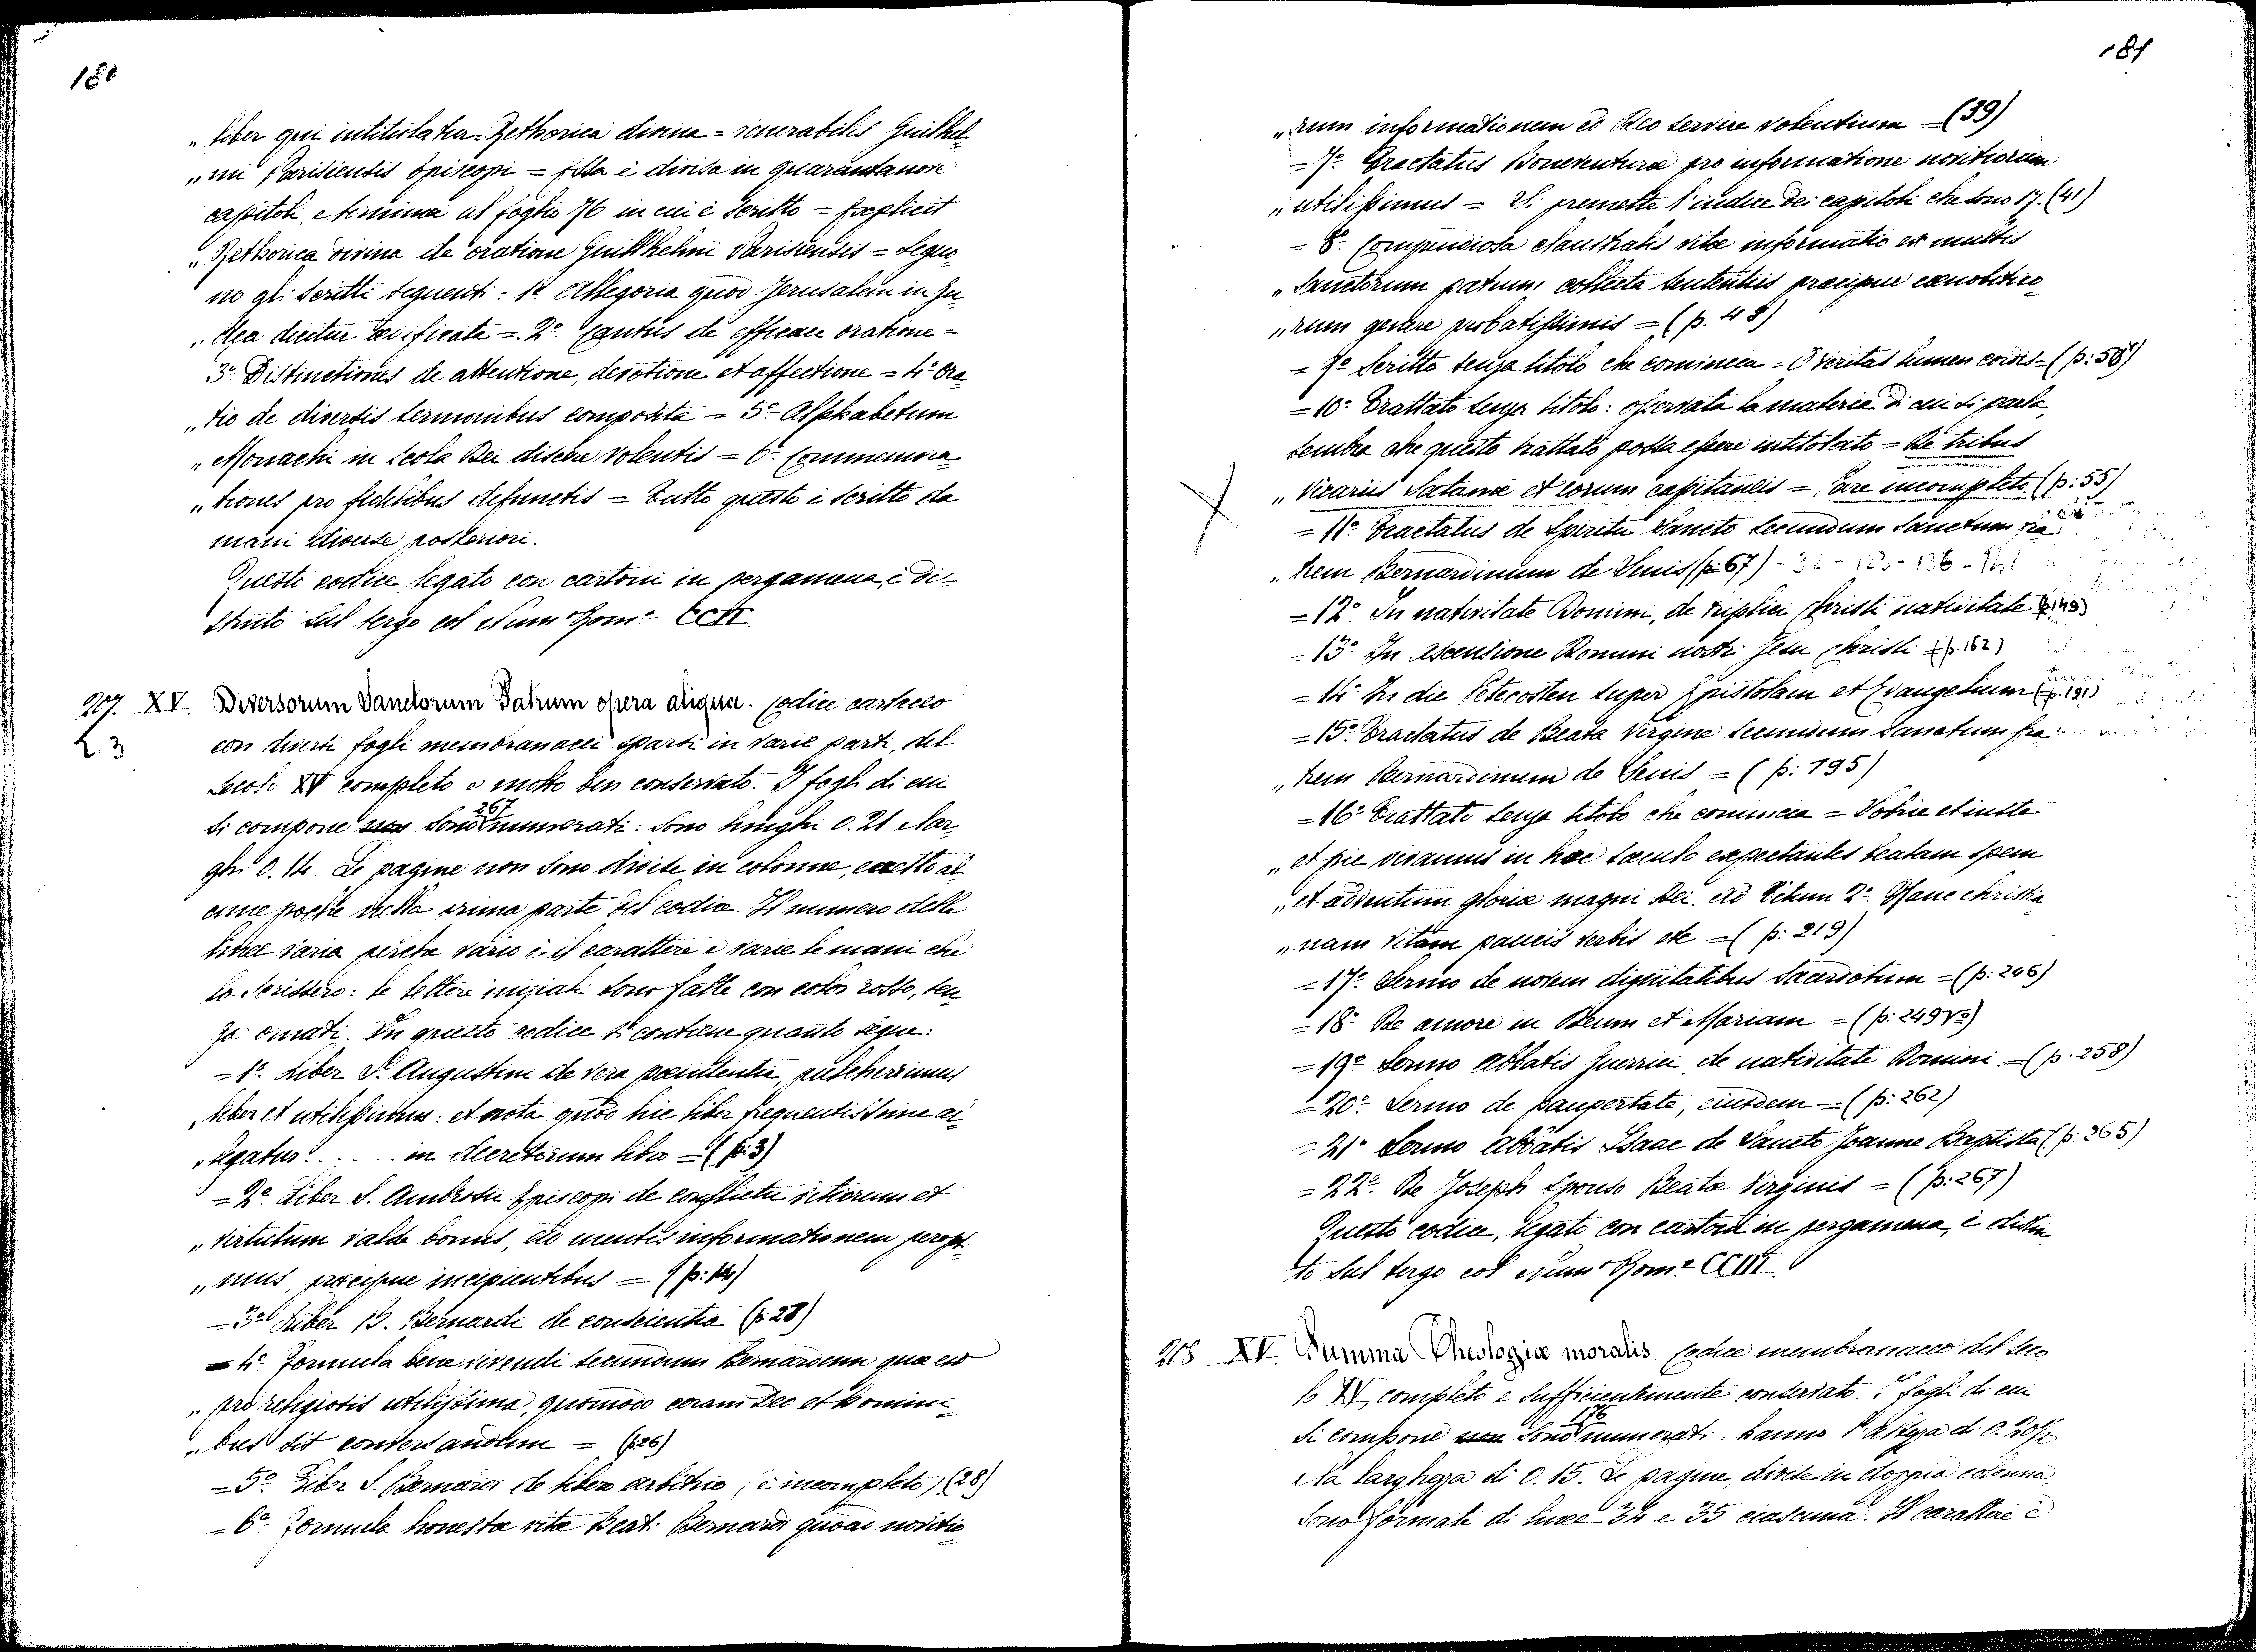 180
„liber qui intitulatur = Rethorica divina = venerabilis Guilhel-
„mi Parisiensis Episcopi = Essa è divisa in quarantanove
capitoli, e termina al foglio 76 in cui è scritto = Explicit
„Rethorica divina de oratione Guilkhelmi Parisiensis = Seguo-
no gli scritti seguenti: 1º Allegoria quod Jerusalem in Ju-
„dea dicitur ædificata = 2º Cantus de efficace oratione =
3º Distinctiones de attentione, devotione et affectione = 4º Ora-
„tio de diversis sermonibus composita = 5º Alphabetum
„Monachi in scola Dei discere volentis = 6º Commemora-
„tiones pro fidelibus defunctis = Tutto questo è scritto da
mani diverse posteriori.
Questo codice legato con cartoni in pergamena, è di-
stinto sul tergo col Num Rom. CCII
207. XV. Diversorum Sanctorum Patrum opera aliqua. Codice cartaceo
L. 3 con diversi fogli membranacei sparsi in varie parti, del
secolo XV completo e molto ben conservato. I fogli di cui
si compone sono 267 numerati: sono lunghi 0. 21 lar-
ghi 0. 14. Le pagine non sono divise in colonne, eccetto al-
cune poche nella prima parte del codice. Il numero delle
linee varia perchè vario è il carattere e varie le mani che
lo scrissero: le lettere iniziali sono fatte con color rosso, sen-
za ornati. In questo codice si contiene quanto segue:
= 1º Liber S. Augustini de vera pœnitentia, pulcherrimus
„liber et utilissimus: et nota quod hic liber frequentissime al-
„legatur ..... in decretorum libro = (p: 3)
= 2º Liber S. Ambrosii Episcopi de conflictu vitiorum et
„virtutum valde bonus, ad mentis informationem peropt-
„mus, præcipue incipientibus = (p: 14)
= 3º Liber B. Bernardi de conscientia (p: 28)
= 4º Formula bene vivendi secundum Bernardum quæ est
„pro religiosis utilissima, quomodo coram Deo et homini-
„bus sit conversandum = (p. 26)
= 5º Liber S. Bernardi de libero arbitrio, (è incompleto) (28)
= 6º Formula honestæ vitæ Beati Bernardi quoad novitio-
181
„rum informationem et Deo servire volentium = (39)
= 7º Tractatus Bonaventuræ pro informatione novitiorum
„utilissimus = Si premette l'indice dei capitoli che sono 17. (41)
= 8º Compendiosa claustralis vitæ informatio ex multis
„Sanctorum patrum collecta sententiis præcipue
„rum genere probatissimis = (p. 48)
= 9º Scritto senza titolo che comincia = O Veritas lumen cordis = (p: 50)
= 10º Trattato senza titolo: osservata la materia di cui si parla,
sembra che questo trattato possa essere intitolato = De tribus
„Vicariis Satanæ et eorum capitaneis = Pare incompleto. (p: 55)
= 11º Tractatus de Spiritu Sancto secundum Sanctum fra-
„trem Bernardinum de Senis (p: 67) - - 123 - 136 - 141
= 12º In nativitate Domini, de triplici Christi nativitate (p. 149)
= 13º In Ascensione Domini nostri Jesu Christi = (p. 162)
= 14º In die Petecosten super Epistolam et Evangelium (p. 191)
= 15º Tractatus de Beata Virgine secundum Sanctum fra-
„trem Bernardinum de Senis = (p: 195)
= 16º Trattato senza titolo che comincia = Sobrie et iuste
„et pie vivamus in hoc sæculo expectantes beatam spem
„et adventum gloriæ magni Dei. etc Item 2º Hanc christia-
„nam vitam paucis verbis etc = (p: 219)
= 17º Sermo de novem dignitatibus Sacerdotum = (p: 246)
= 18º De amore in Deum et Mariam = (p: 249 vº)
= 19º Sermo Abbatis Guerrici de nativitate Domini = (p. 258)
= 20º Sermo de paupertate, eiusdem = (p: 262)
= 21º Sermo Abbatis Isaac de Sancto Joanne Baptista (p: 265)
= 22º De Joseph Sponso Beatæ Virginis = (p: 267)
Questo codice, legato con cartoni in pergamena, è distin-
to sul tergo col Num Rom. CCIII
208 XV. Summa Theologiæ moralis. Codice membranaceo del seco-
lo XV, completo e sufficientemente conservato. I fogli di cui
si compone sono 176 numerati: hanno l'altezza di 0. 20½
e la larghezza di 0. 15. Le pagine, divise in doppia colonna,
sono formate di linee 34 e 35 ciascuna. Il carattere è